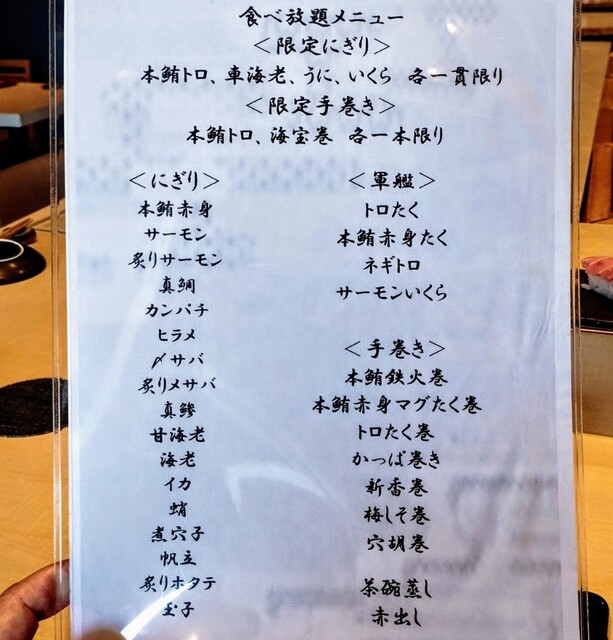 食べ放題メニュー
＜限定にぎり＞
本鮪トロ、車海老、うに、いくら　各一貫限り
＜限定手巻き＞
本鮪トロ、海宝巻　各一本限り
＜にぎり＞
本鮪赤身
サーモン
炙りサーモン
真鯛
カンパチ
ヒラメ
〆サバ
炙り〆サバ
真鯵
甘海老
海老
イカ
蛸
煮穴子
帆立
炙りホタテ
玉子
＜軍艦＞
トロたく
本鮪赤身たく
ネギトロ
サーモンいくら
＜手巻き＞
本鮪鉄火巻
本鮪赤身マグたく巻
トロたく巻
かっぱ巻き
新香巻
梅しそ巻
穴胡巻
茶碗蒸し
赤出し